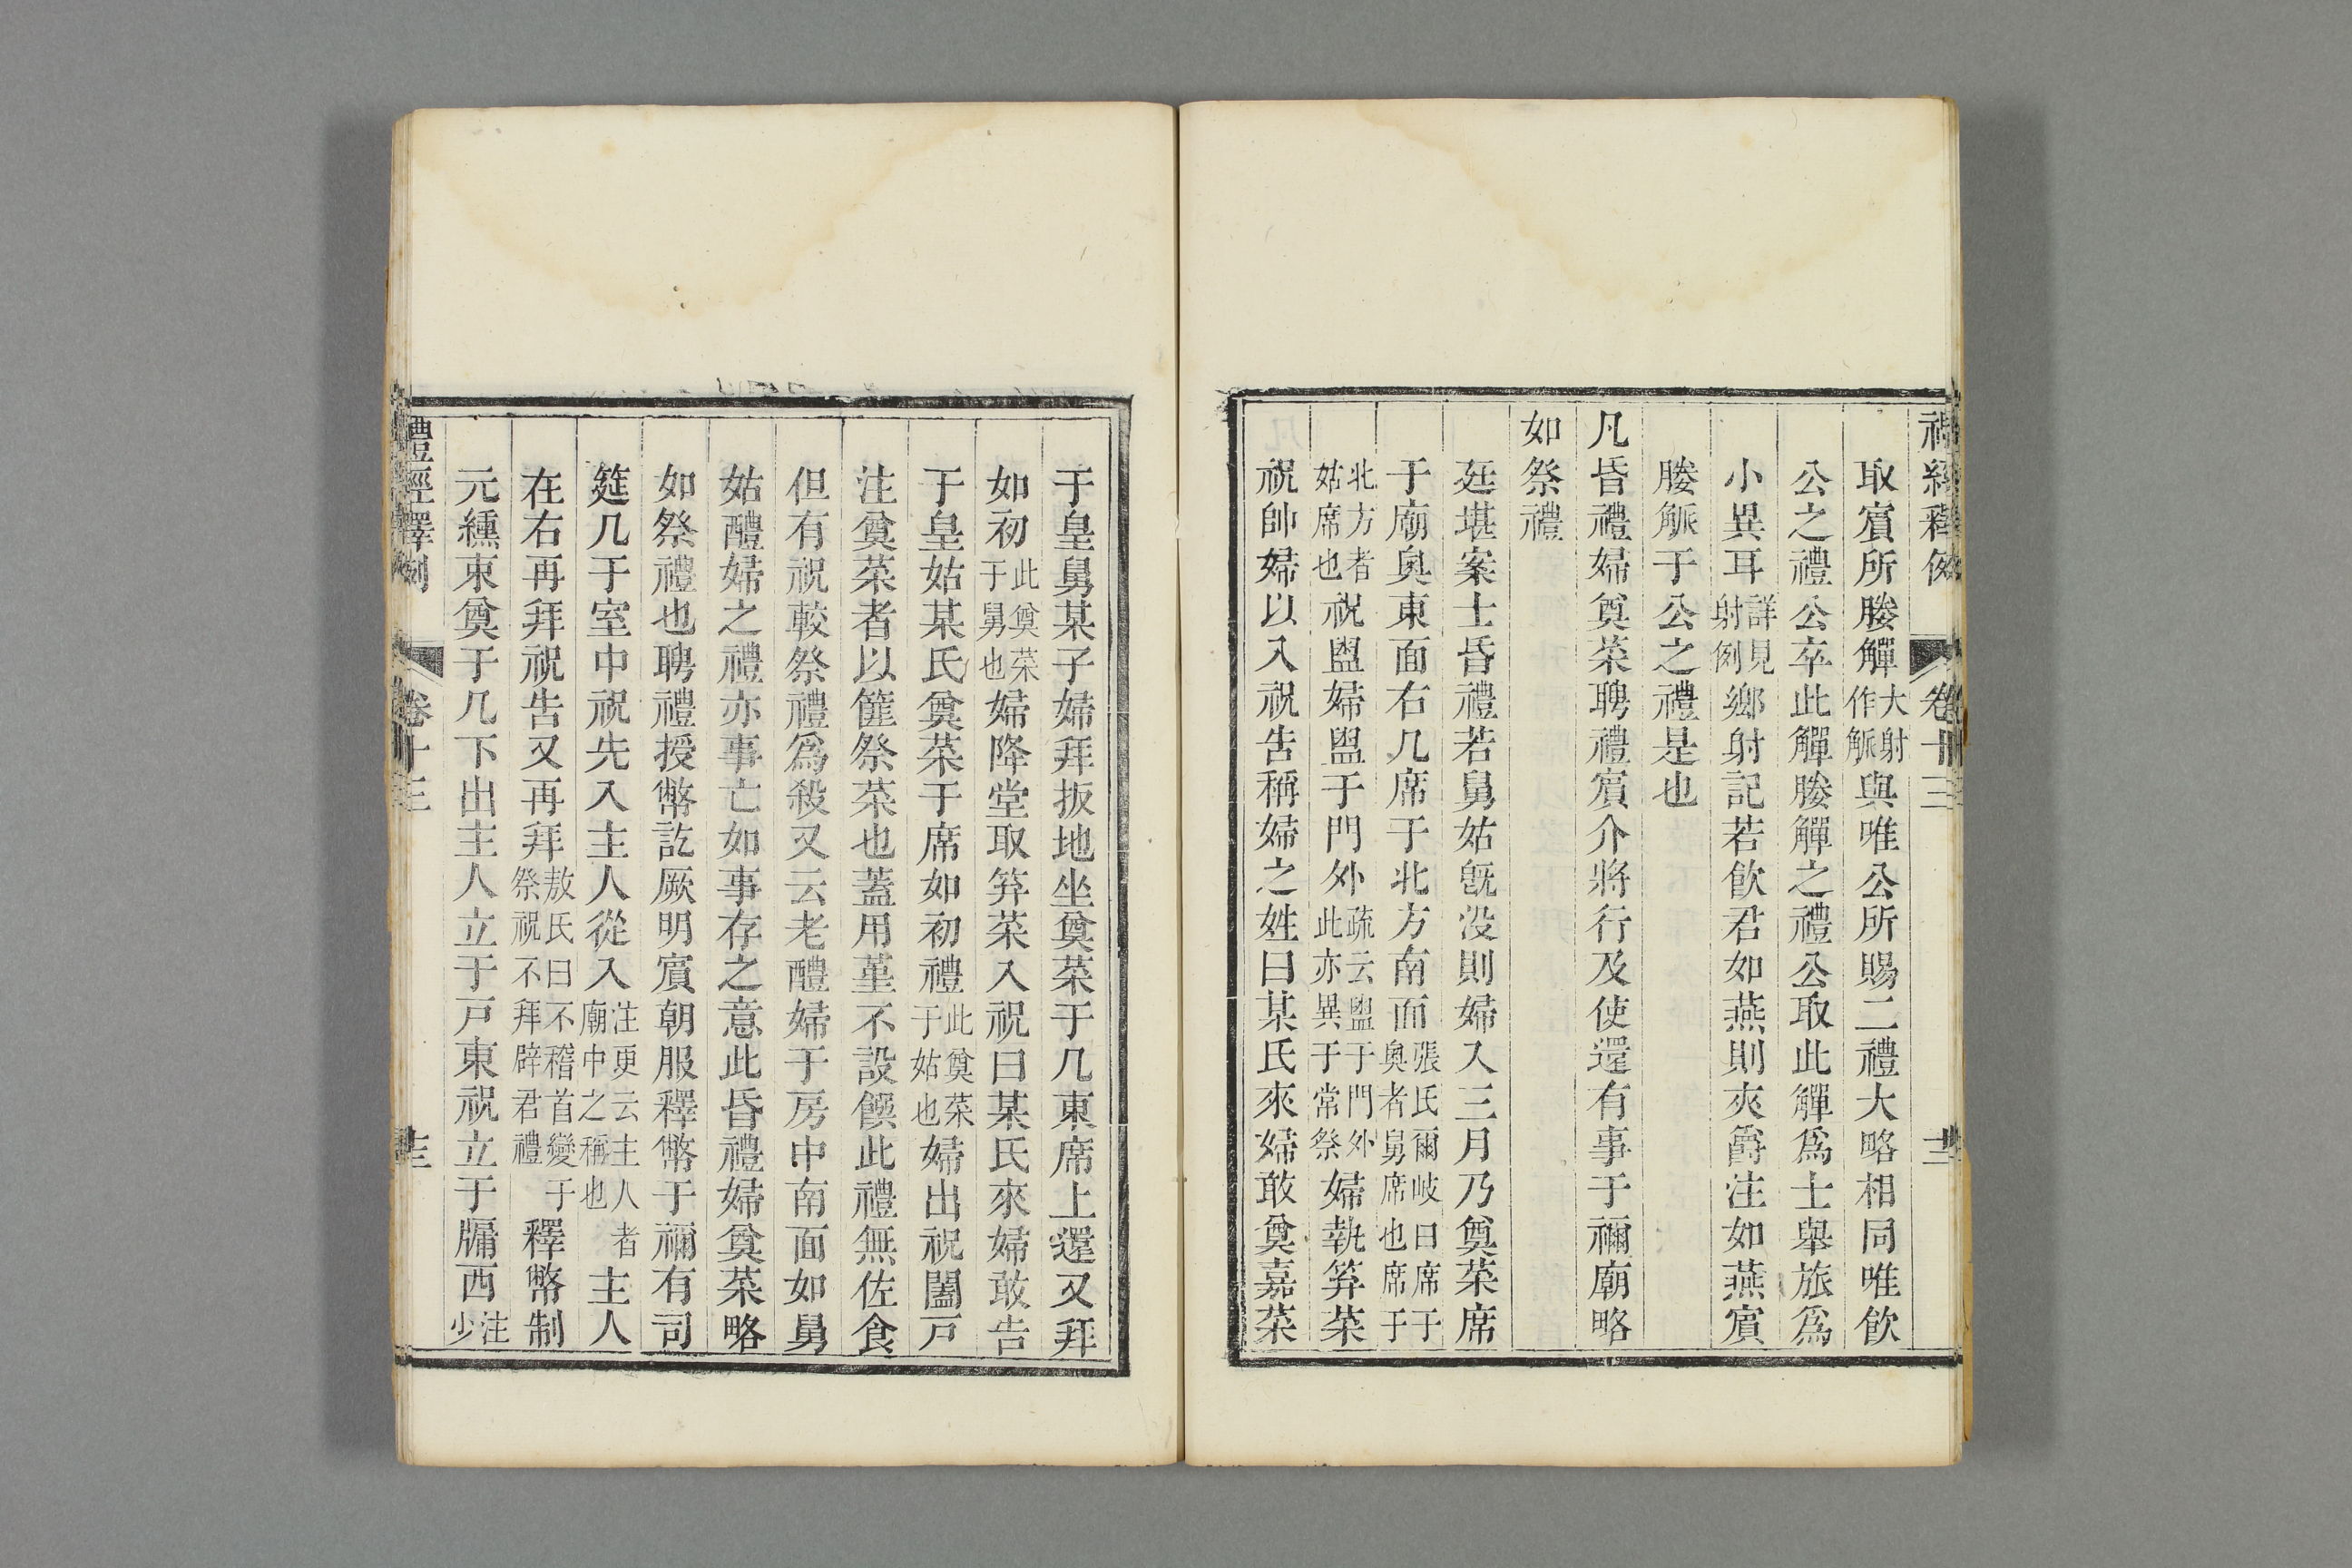 禮經釋例 卷十三 十二
取賓所媵觶大射作觚與唯公所賜二禮大略相同唯飲
公之禮公卒此觶媵觶之禮公取此觶爲士舉旅爲
小異耳詳見射例鄉射記若飲君如燕則夾爵注如燕賓
媵觚于公之禮是也
凡昏禮婦奠菜聘禮賓介將行及使還有事于禰廟略
如祭禮
廷堪案士昏禮若舅姑既沒則婦入三月乃奠菜席
于廟奧東面右几席于北方南面張氏爾岐曰席于奧者舅席也席于
北方者姑席也祝盥婦盥于門外疏云盥于門外此亦異于常祭婦執笲菜
祝帥婦以入祝告稱婦之姓曰某氏來婦敢奠嘉菜
于皇舅某子婦拜扱地坐奠菜于几東席上還又拜
如初此奠菜于舅也婦降堂取笲菜入祝曰某氏來婦敢告
于皇姑某氏奠菜于席如初禮此奠菜于姑也婦出祝闔戸
注奠菜者以篚祭菜也蓋用堇不設饌此禮無佐食
但有祝較祭禮爲殺又云老醴婦于房中南面如舅
姑醴婦之禮亦事亡如事存之意此昏禮婦奠菜略
如祭禮也聘禮授幣訖厥明賓朝服釋幣于禰有司
筵几于室中祝先入主人從入注更云主人者廟中之稱也主人
在右再拜祝告又再拜敖氏曰不稽首變于祭祝不拜辟君禮釋幣制
元纁束奠于几下出主人立于戸東祝立于牖西注少
禮經釋例 卷十三 十三